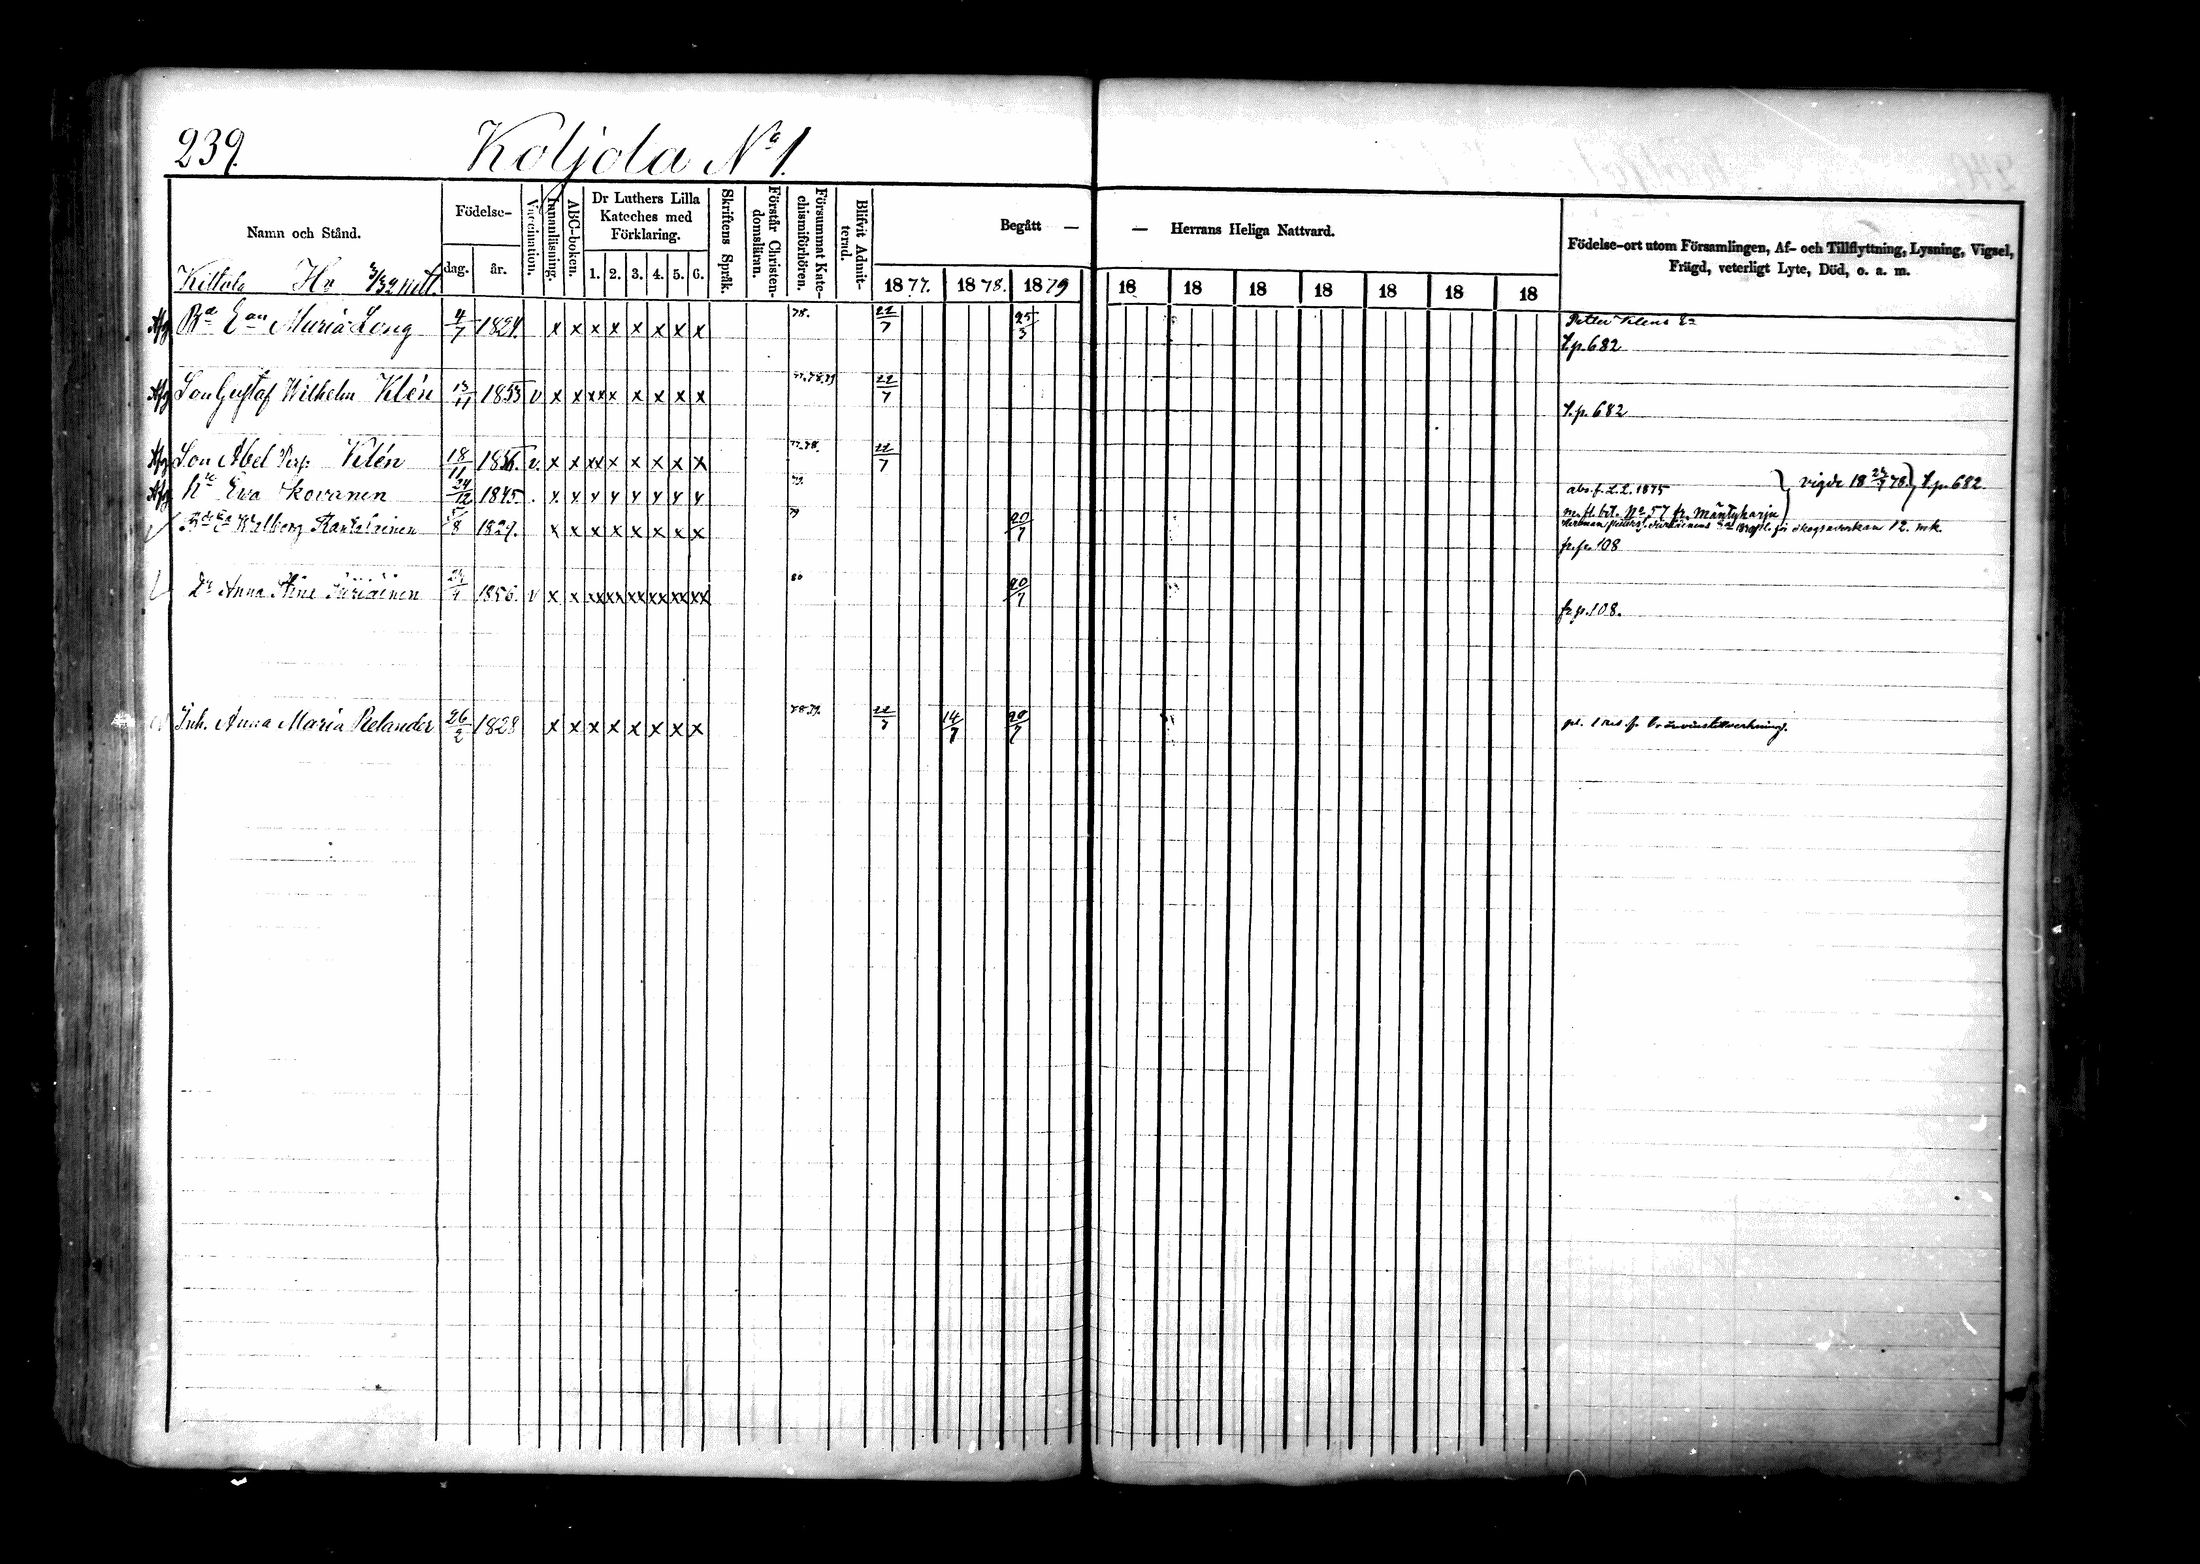 239.
Koljola No 1.
Namn och Stånd.
Födelse-
dag.
år.
Vaccination.
Innanläsning.
ABC-boken.
Dr Luthers Lilla Kateches med Förklaring.
1. 2. 3. 4. 5. 6.
Skriftens Språk.
Förstår Christendomsläran.
Försummat Katechismiförhören.
Blifvit Admitterad.
Begått —
— Herrans Heliga Nattvard.
1877. 1878. 1879 18 18 18 18 18 18 18
Födelse-ort utom Församlingen, Af- och Tillflyttning, Lysning, Vigsel,
Frägd, veterligt Lyte, Död, o. a. m.
Kettola Hn
Afg Ba Ean Maria Long 4/7 1824. x x x x x x x x 78. 22/7 25/3
f.p. 682
Afg Son Gustaf Wilhelm Klén 13/11 1853 v x x xx x x x x x 77.78.79 22/7
f.p. 682
Afg Son Abel Klén 18/11 1856. v. x x xx x x x x x 77.78. 22/7
Afg Eva Skovanen 24/12 1845. x x x x x x x x 79. abs. f. L.L. 1875 vigde 18 78. f.p. 682
Walborg 1827. x x x x x x x x 79 20/7 m. fl. bet. No. 57 fr. Mäntyharju
12. mk.
fr.p. 108
Dr Anna Stina 1856. v x x xx xx xx xx xx xx 80 20/7
fr.p. 108.
Inh. Anna Maria Relander 26/2 1828 x x x x x x x x 78.79. 22/7 14/7 20/7